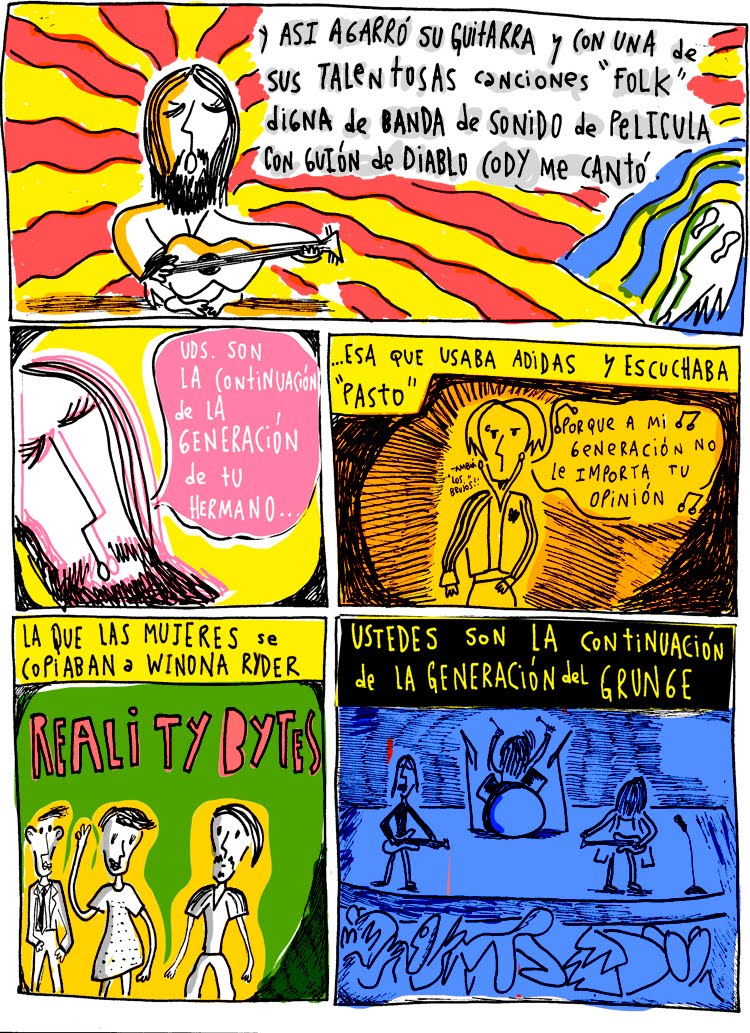 y ASI AGARRÓ SU GUITARRA y CON UNA de
SUS TALENTOSAS canciones "FOLK"
diGNA de BANDA de SONIDO de PELICULA
CON GUIÓN de DIABLO CODY ME CANTÓ
UDS. SON
LA CONtiNUACIÓN
de LA
GENERACIÓN
de tu
HERMANO...
...ESA QUE USABA ADIDAS y ESCUCHABA
"PASTO"
PORQUE A MI
GENERACIÓN NO
LE IMPORTA TU
OPINIÓN
TAMBIÉN
"LOS
BRUJOS"!!
LA QUE LAS MUJERES se
COPIABAN a WINONA RYDER
REALITY BYTES
USTEDES SON LA CONTiNUACIÓN
de LA GENERACIÓN del GRUNGE